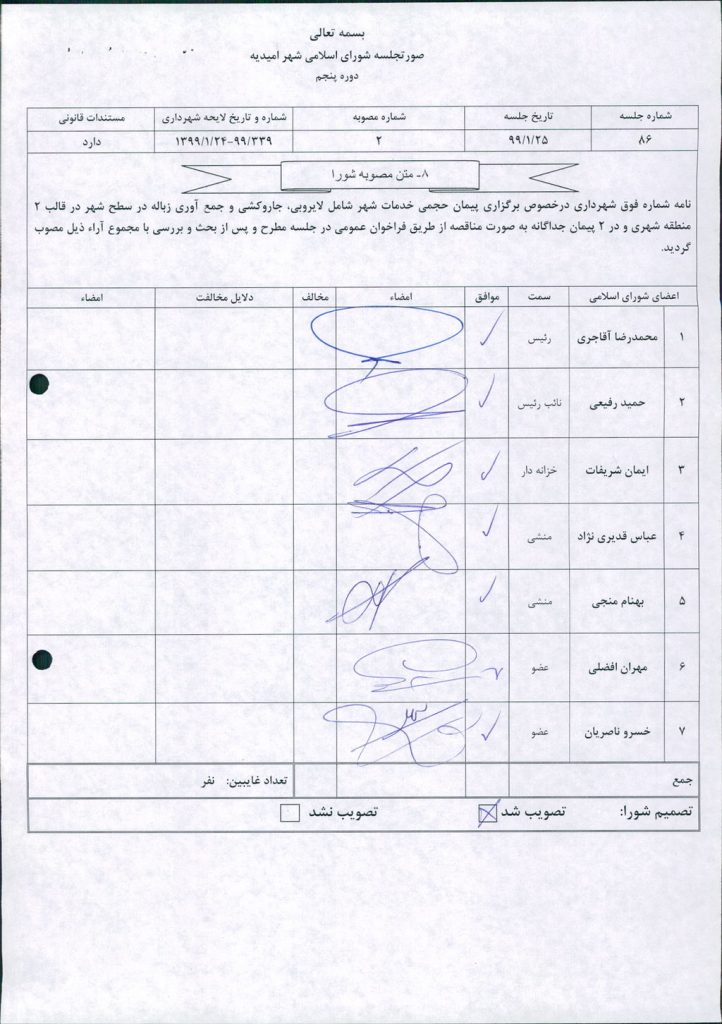 بسمه تعالی
صورتجلسه شورای اسلامی شهر امیدیه
دوره پنجم
شماره جلسه	تاریخ جلسه	شماره مصوبه	شماره و تاریخ لایحه شهرداری	مستندات قانونی
۸۶	۹۹/۱/۲۵	۲	۱۳۹۹/۱/۲۴-۹۹/۳۳۹	دارد
۸- متن مصوبه شورا
نامه شماره فوق شهرداری درخصوص برگزاری پیمان حجمی خدمات شهر شامل لایروبی، جاروکشی و جمع آوری زباله در سطح شهر در قالب ۲
منطقه شهری و در ۲ پیمان جداگانه به صورت مناقصه از طریق فراخوان عمومی در جلسه مطرح و پس از بحث و بررسی با مجموع آراء ذیل مصوب
گردید.
اعضای شورای اسلامی	سمت	موافق	امضاء	مخالف	دلایل مخالفت	امضاء
۱	محمدرضا آقاجری	رئیس	✓
۲	حمید رفیعی	نائب رئیس	✓
۳	ایمان شریفات	خزانه دار	✓
۴	عباس قدیری نژاد	منشی	✓
۵	بهنام منجی	منشی	✓
۶	مهران افضلی	عضو
۷	خسرو ناصریان	عضو	✓
جمع	تعداد غایبین:	نفر
تصمیم شورا:	تصویب شد ☒	تصویب نشد ☐